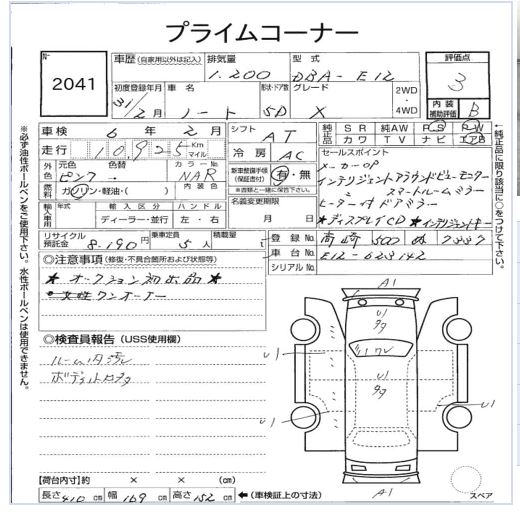 プライムコーナー
No 2041
車歴 (自家用以外は記入) 排気量 型式
1.200 DBA-E12
初度登録年月 車名 形状・ドア数 グレード 2WD・4WD
31/2月 ノート 5D X
評価点
3
内装補助評価 B
車検 6年2月 シフト AT
走行 10925 Km マイル 冷房 AC
純正品 SR 純AW PS PW
カワ TV ナビ エアB
外色 元色 色替 カラーNo.
ピンク→ NAR
燃料 ガソリン・軽油・( ) 内装色
新車整備手帳(保証書付) 有・無
※書類と一緒に保管下さい。
セールスポイント
メーカーOP
インテリジェントアラウンドビューモニター
スマートルームミラー
ヒーター付ドアミラー
★ディスプレイCD ★インテリジェントキー
輸入車用 年式 輸入区分 ハンドル
ディーラー・並行 左・右
名義変更期限
月 日
リサイクル預託金 8.190円 乗車定員 5人 積載量 t
登録No. 高崎 500 ぬ 7337
車台No. E12-623142
シリアルNo.
◎注意事項 (修復・不具合箇所および状態等)
★オークション初出品★
★女性ワンオーナー
◎検査員報告 (USS使用欄)
ルーム内汚れ
A1
U1
A1
スペア
【荷台内寸】約 × × (cm)
長さ 410 cm 幅 169 cm 高さ 152 cm ←(車検証上の寸法)
※必ず油性ボールペンをご使用下さい。水性ボールペンは使用できません。
←純正品に限り該当に○をつけて下さい。